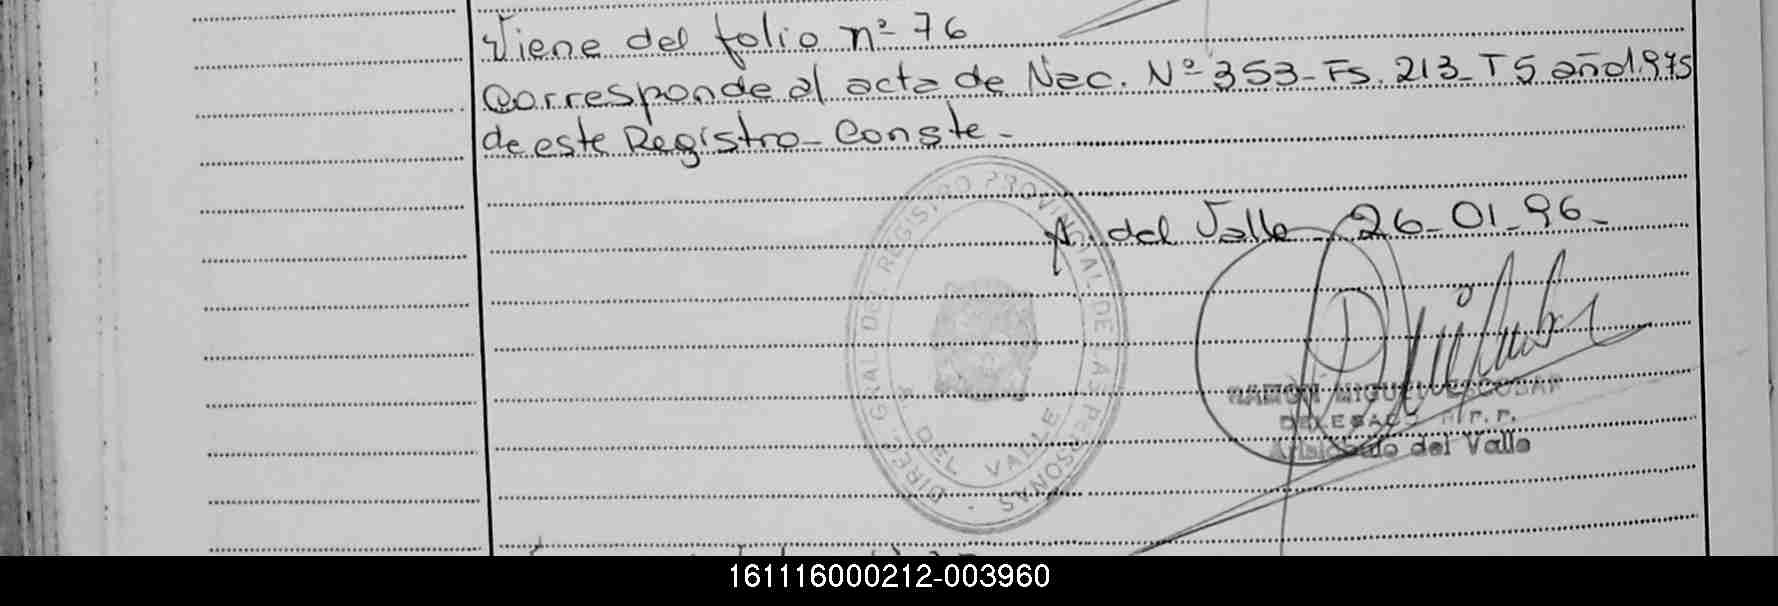 Viene del folio nº 76
Corresponde al acta de Nac. Nº 353_Fs. 213_T5 año1.975
de este Registro_ Conste_
A. del Valle_ 26_01_96_
DIREC. GRAL. DEL REGISTRO PROVINCIAL DE LAS PERSONAS
DEL VALLE
RAMON MIGUEL ESCOBAR
DELEGADO R.P.P.
Aristóbulo del Valle
161116000212-003960